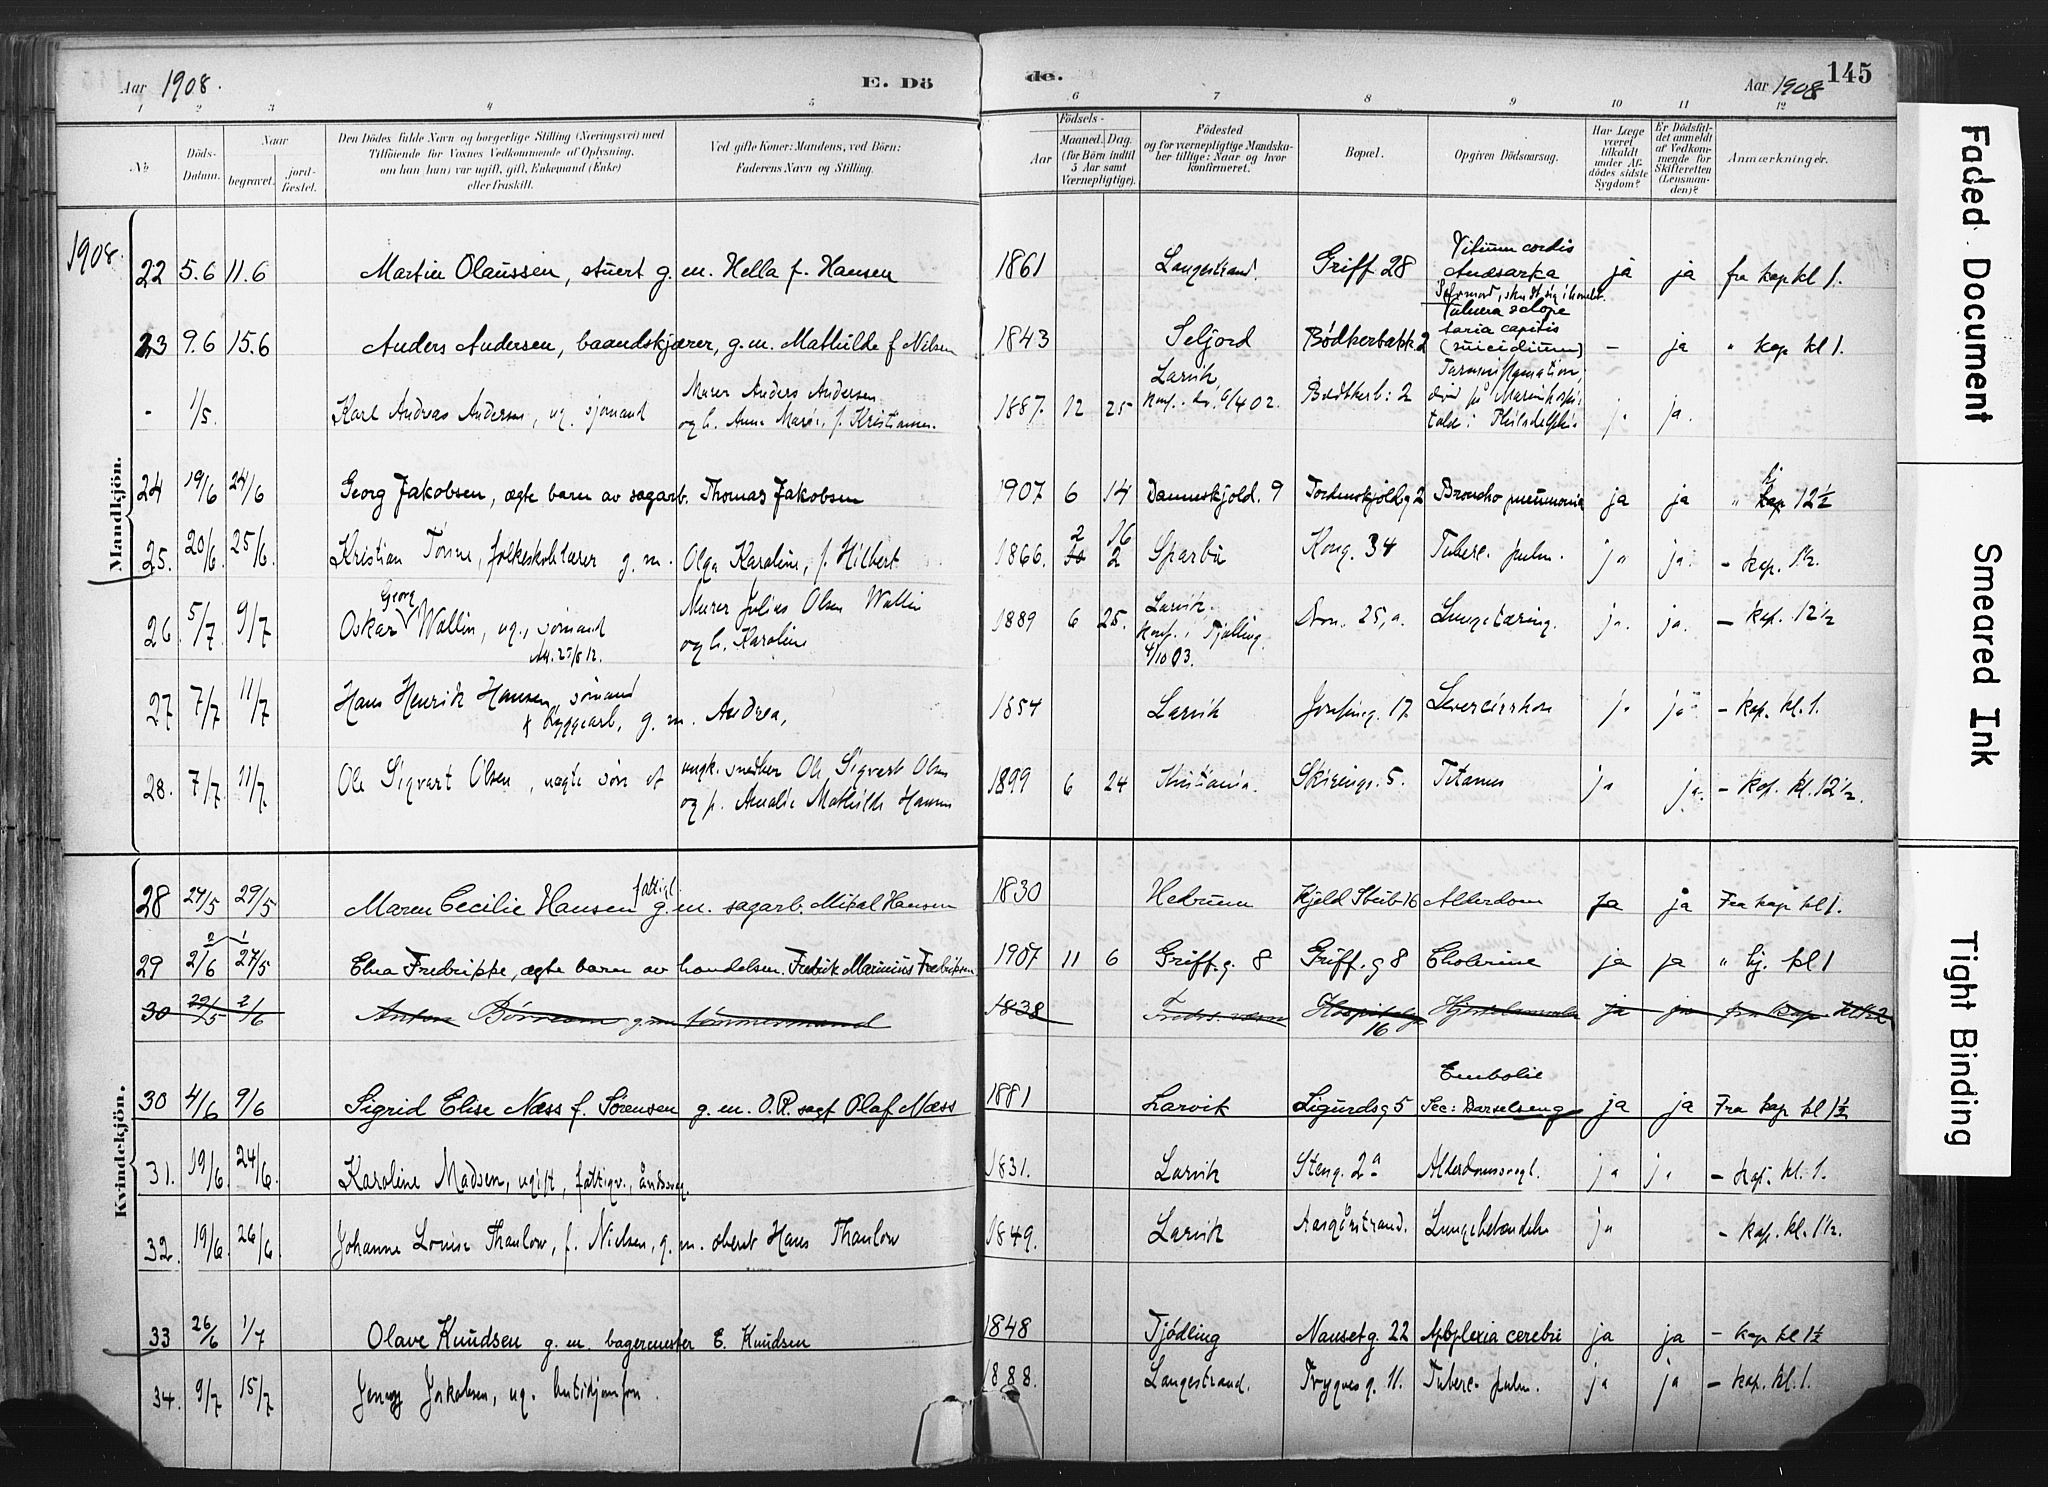 Aar 1908. E. Dö de. Aar 1908 145
1 2 3 4 5 6 7 8 9 10 11 12
No
Döds-
Datum.
Naar
begravet.
jord-
fæstet.
Den Dödes fulde Navn og borgerlige Stilling (Næringsvei) med
Tilföiende for Voxnes Vedkommende af Oplysning,
om han (hun) var ugift, gift, Enkemand (Enke)
eller fraskilt.
Ved gifte Koner: Mandens, ved Börn:
Faderens Navn og Stilling.
Födsels-
Aar
Maaned. Dag.
(for Börn indtil
5 Aar samt
Værnepligtige).
Födested
og for værnepligtige Mandska-
ber tillige: Naar og hvor
konfirmeret.
Bopæl.
Opgiven Dödsaarsag.
Har Læge
været
tilkaldt
under Af-
dödes sidste
Sygdom?
Er Dödsfal-
det anmeldt
af Vedkom-
mende for
Skifteretten
(Lensman-
den)?
Anmærkninger.
1908.
Mandkjön.
22 5.6 11.6 Martin Olaussen, stuert g. m. Hella f. Hansen 1861 Langestrand. Griff 28 Vitium cordis
Anasarka ja ja fra kap kl 1.
23 9.6 15.6 Anders Andersen, baandskjærer, g. m. Mathilde f Nilsen 1843 Seljord Bødkerbakk 2 Selvmord, skudt sig i hovedet.
Vulnera sclope
taria capitis
(suicidium) - ja " kap kl 1.
- 1/5. Karl Andreas Andersen, ug. sjømand Murer Anders Andersen
og h. Anne Marie, f. Kristiansen. 1887. 12 25 Larvik,
konf. 02. Bødtkerb: 2 Tarminflamation,
død på Marinhospi-
talet i Philadelphia ja.
24 19/6 24/6 Georg Jakobsen, ægte barn av sagarb. Thomas Jakobsen 1907 6 14 Danneskjold. 9 Tordenskjoldsg 2 Broncho pneumonia ja ja " hj 12½
25. 20/6 25/6 Kristian Tønne, folkeskolelærer g. m. Olga Karoline, f. Hilbert 1866. 2 16
10 2 Sparbu Kong. 34 Tuberc. pulm. ja ja. - kap. 1½.
26. 5/7 9/7 Oskar Georg Wallin, ug., sømand
Att. 25/8 12. Murer Julius Olsen Wallin
og h. Karoline 1889 6 25. Larvik.
konf. i Tjølling.
4/10 03. Dron. 25, a. Lungetæring. ja. ja. - kap. 12½
27 7/7 11/7 Hans Henrik Hansen, sømand
& bryggearb, g. m. Andrea, 1854 Larvik Jomfrug. 17. Levercirrhose ja ja - kap. kl. 1.
28. 7/7 11/7 Ole Sigvart Olsen, uægte søn af ungk. snedker Ole Sigvart Olsen
og p. Amalie Mathilde Hansen 1899 6 24 Kristiania. Skirings. 5. Tetanus ja ja. - kap. kl. 12½.
Kvindekjön.
28 24/5 29/5 Maren Cecilie Hansen fattigl. g. m. sagarb. Mikal Hansen 1830 Hedrum Kjeld Stub 16 Alderdom ja ja Fra kap kl 1.
29 2/6 27/5 2 1 Elna Fredrippe, ægte barn av handelsm. Fredrik Marinius Fredriksen 1907 11 6 Griff. g. 8 Griff. g 8 Cholerine ja ja " hj. kl 1
30 29/5 2/6 Anton g. m. tømmermand 1838 Fredr. værn Hospitalg.
16 Hjertelammelse ja ja fra kap kl 12
30 4/6 9/6 Sigrid Elise Næss f. Sørensen g. m. O.R. sagf Olaf Næss 1881 Larvik Sigurdsg 5 Embolie
Sec: Barselseng ja ja Fra kap kl 1½
31. 19/6 24/6 Karoline Madsen, ugift, fattigv., åndssvag. 1831. Larvik Steng. 2a Alderdomssvagt. ja ja - kap. kl. 1.
32. 19/6 26/6 Johanne Lovise Thaulow, f. Nielsen, g. m. oberst Hans Thaulow 1849. Larvik Aasgårstrand. Lungebetændelse ja - kap. kl. 1½.
33 26/6 1/7 Olave Knudsen g. m. bagermester E. Knudsen 1848 Tjødling Nansetg. 22 Apoplexia cerebri ja ja - kap kl 1½
34. 9/7 15/7 Jenny Jakobsen, ug. butikjomfru. 1888. Langestrand. Trygvesg. 11. Tuberc. pulm. ja ja - kap. kl. 1.
Faded Document
Smeared Ink
Tight Binding